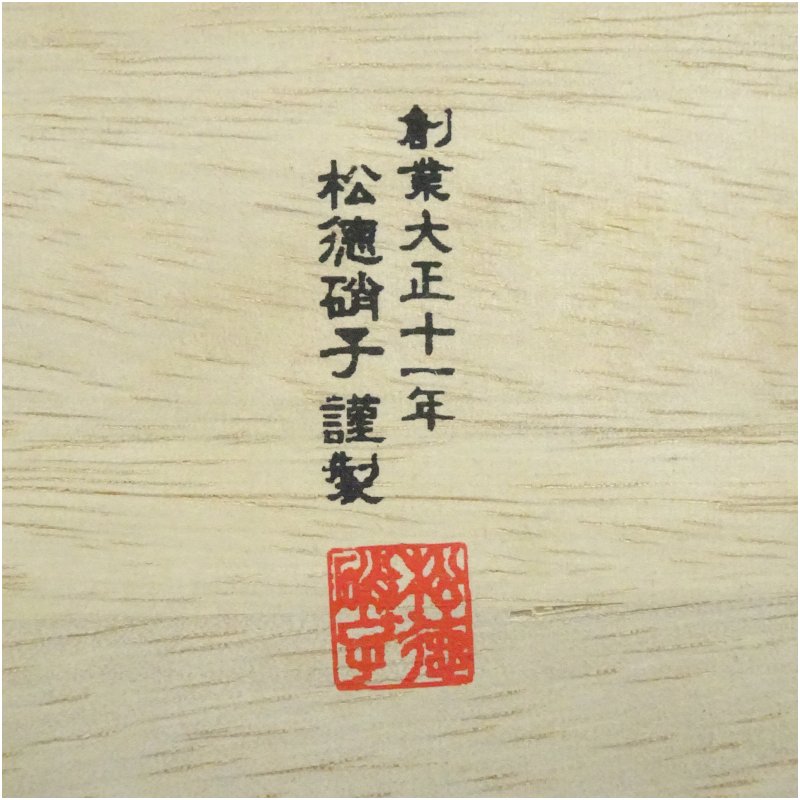 創業大正十一年
松徳硝子謹製
松徳
硝子